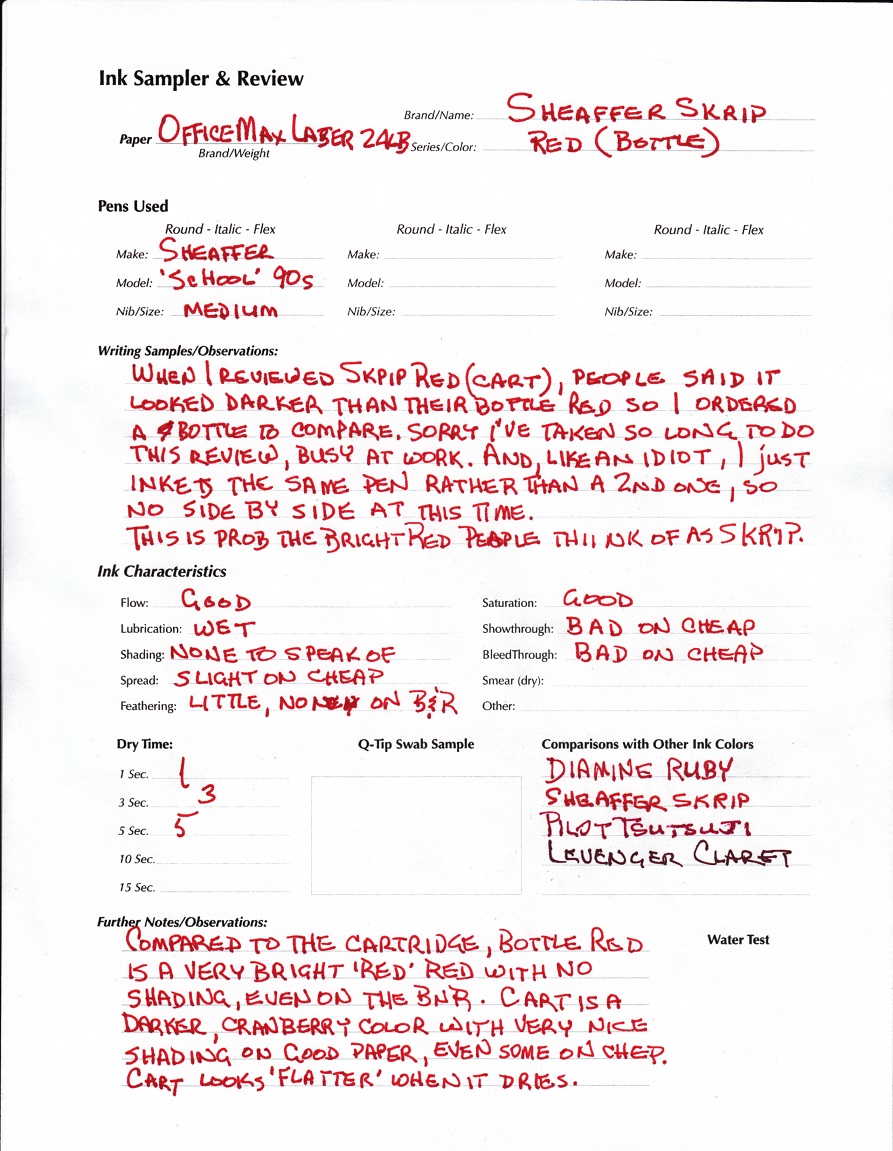 Ink Sampler & Review
Brand/Name: SHEAFFER SKRIP
Paper OFFICEMAX LASER 24LB Series/Color: RED (BOTTLE)
Brand/Weight
Pens Used
Round - Italic - Flex Round - Italic - Flex Round - Italic - Flex
Make: SHEAFFER Make: Make:
Model: 'SCHOOL' 90s Model: Model:
Nib/Size: MEDIUM Nib/Size: Nib/Size:
Writing Samples/Observations:
WHEN I REVIEWED SKPIP RED (CART), PEOPLE SAID IT
LOOKED DARKER THAN THEIR BOTTLE RED SO I ORDERED
A BOTTLE TO COMPARE. SORRY I'VE TAKEN SO LONG TO DO
THIS REVIEW, BUSY AT WORK. AND, LIKE AN IDIOT, I JUST
INKED THE SAME PEN RATHER THAN A 2ND ONE, SO
NO SIDE BY SIDE AT THIS TIME.
THIS IS PROB THE BRIGHT RED PEOPLE THIINK OF AS SKRIP.
Ink Characteristics
Flow: GOOD Saturation: GOOD
Lubrication: WET Showthrough: BAD ON CHEAP
Shading: NONE TO SPEAK OF BleedThrough: BAD ON CHEAP
Spread: SLIGHT ON CHEAP Smear (dry):
Feathering: LITTLE, NONE ON B&R Other:
Dry Time: Q-Tip Swab Sample Comparisons with Other Ink Colors
1 Sec. 1 DIAMINE RUBY
3 Sec. 3 SHEAFFER SKRIP
5 Sec. 5 PILOT TSUTSUJI
10 Sec. LEVENGER CLARET
15 Sec.
Further Notes/Observations:
COMPARED TO THE CARTRIDGE, BOTTLE RED Water Test
IS A VERY BRIGHT 'RED' RED WITH NO
SHADING, EVEN ON THE BNR. CART IS A
DARKER, CRANBERRY COLOR WITH VERY NICE
SHADING ON GOOD PAPER, EVEN SOME ON CHEP.
CART LOOKS 'FLATTER' WHEN IT DRIES.